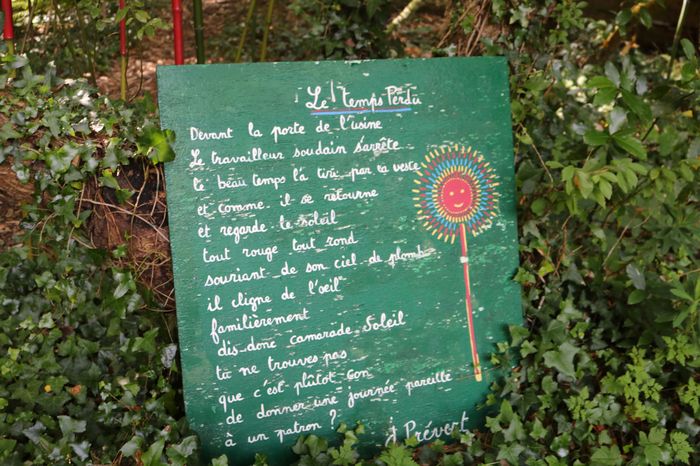 Le temps Perdu
Devant la porte de l'usine
Le travailleur soudain s'arrête
le beau temps l'a tiré par sa veste
et comme il se retourne
et regarde le soleil
tout rouge tout rond
souriant de son ciel de plomb
il cligne de l'oeil
familièrement
dis donc camarade Soleil
tu ne trouves pas
que c'est plutôt con
de donner une journée pareille
à un patron ?
J Prévert